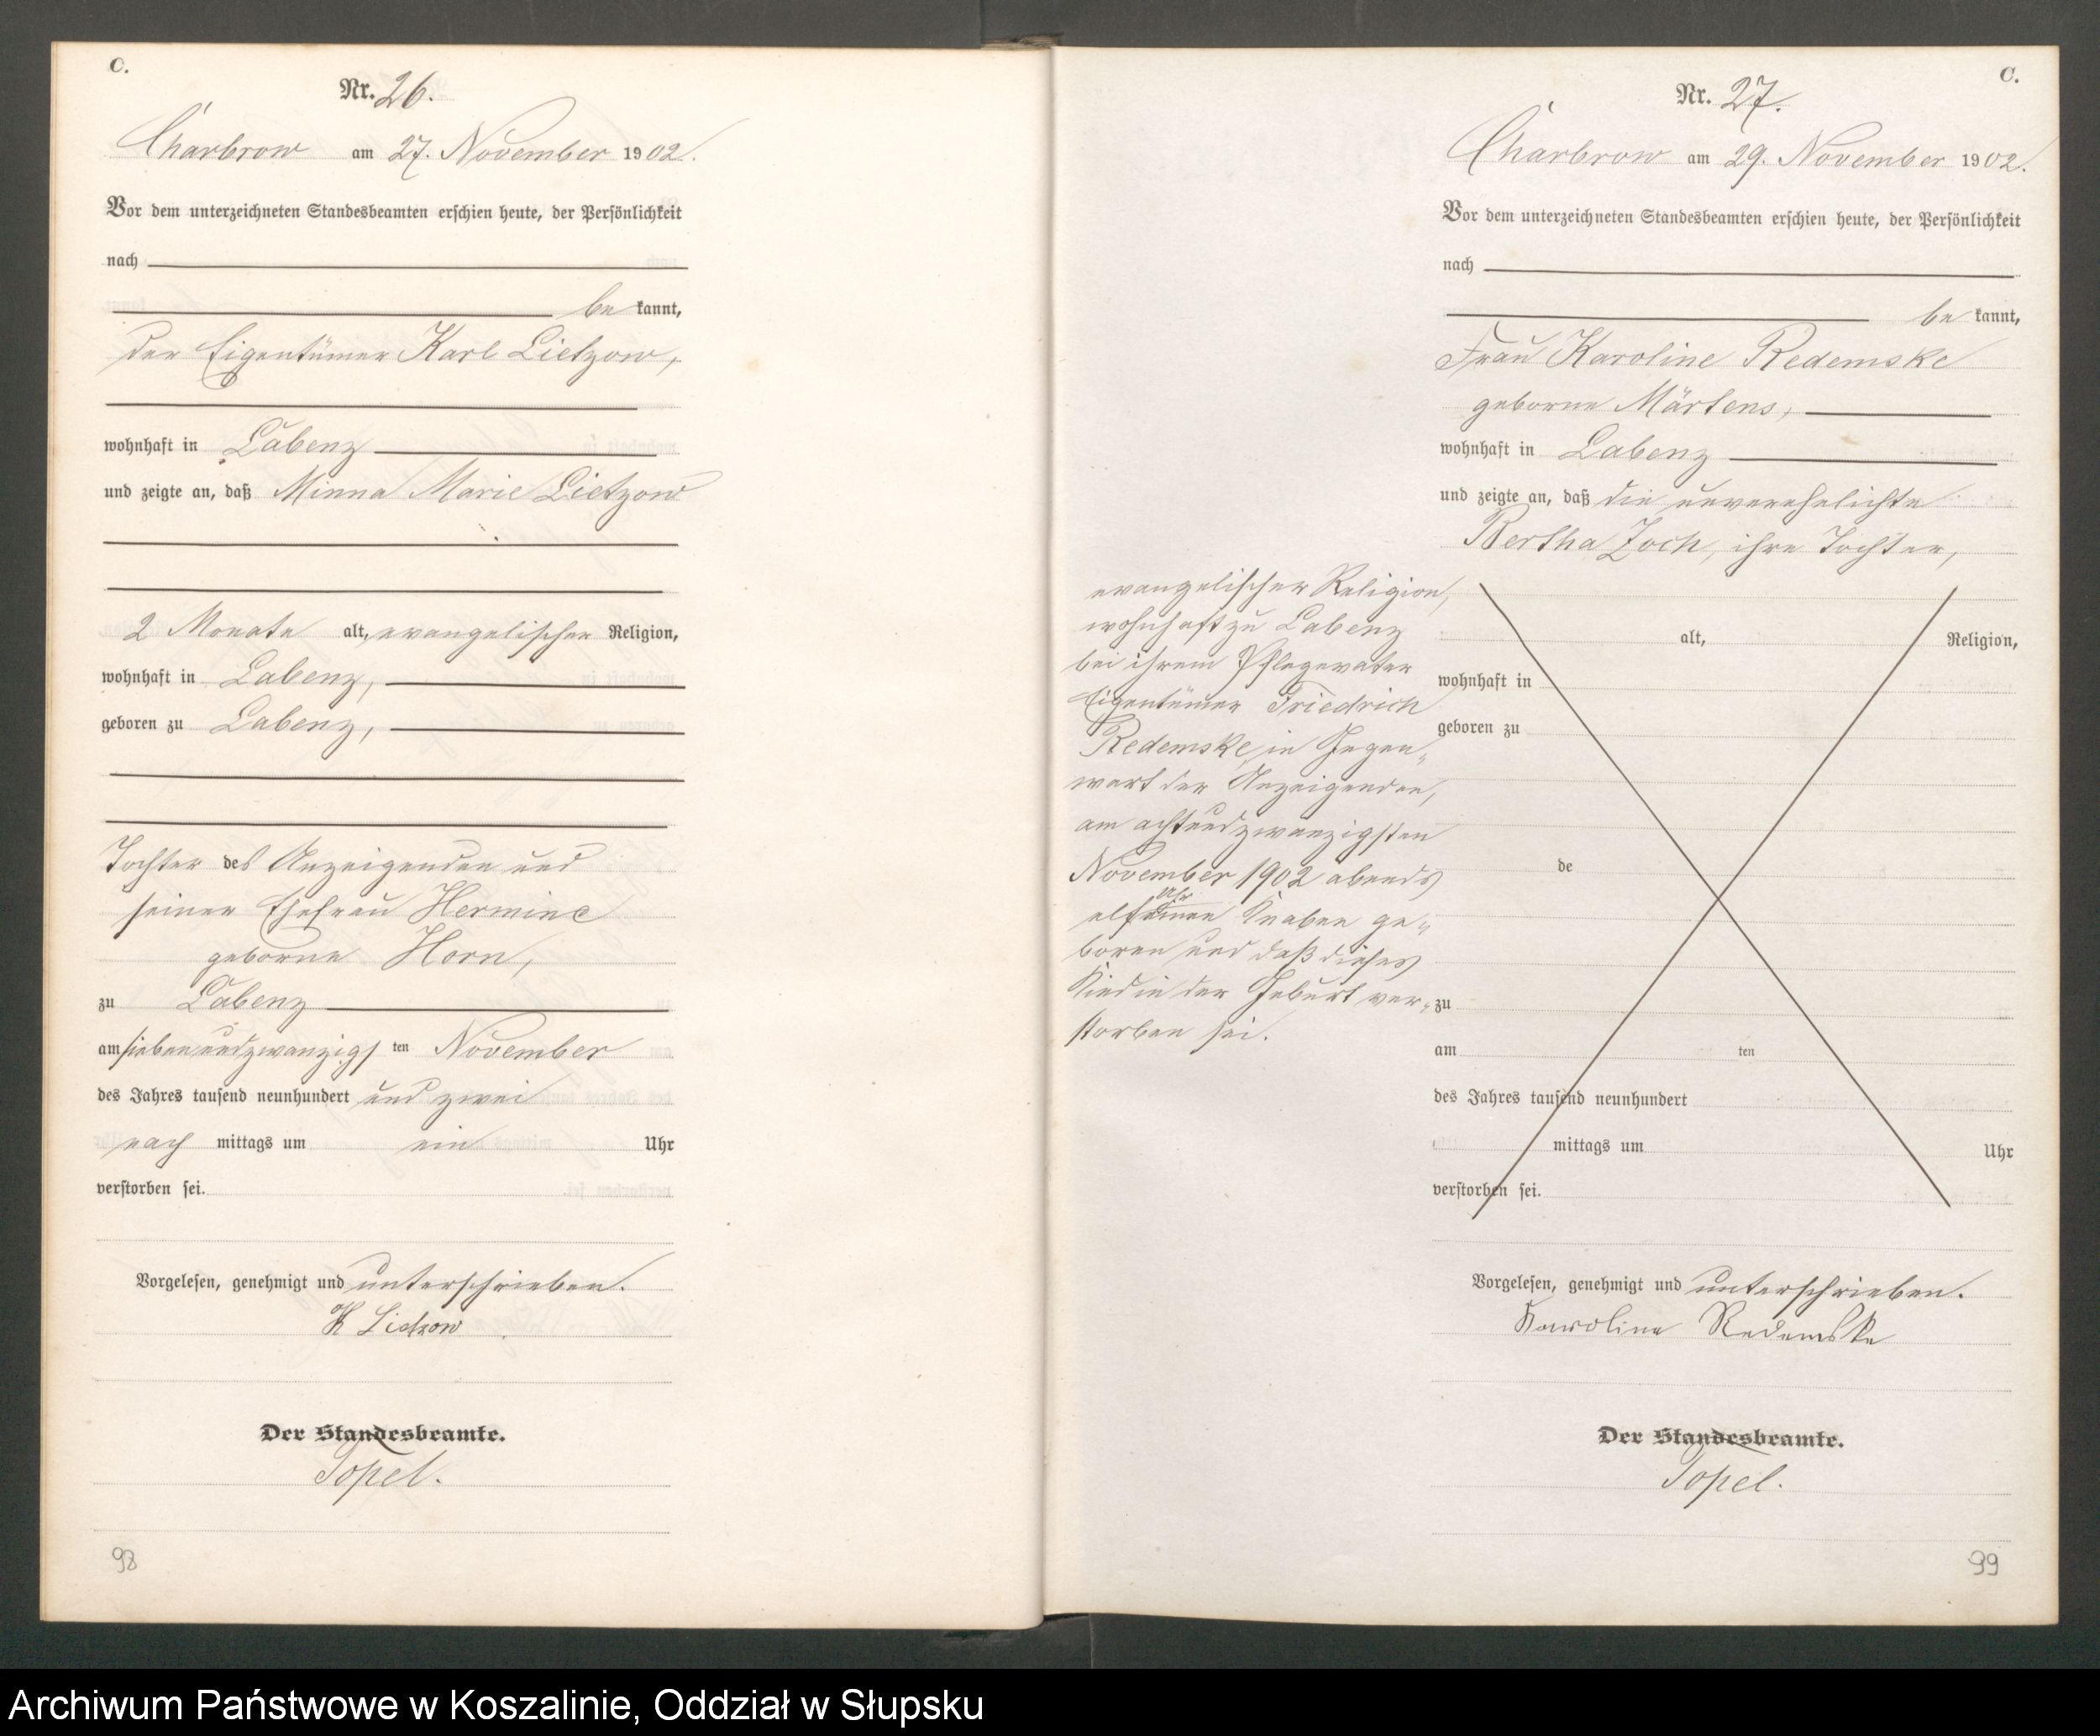 C.
Nr. 26.
Charbrow am 27. November 1902.
Vor dem unterzeichneten Standesbeamten erschien heute, der Persönlichkeit
nach
be kannt,
der Eigentümer Karl Lietzow,
wohnhaft in Labenz
und zeigte an, daß Minna Marie Lietzow
2 Monate alt, evangelischer Religion,
wohnhaft in Labenz,
geboren zu Labenz,
Tochter des Anzeigenden und
seiner Ehefrau Hermine
geborne Horn,
zu Labenz
am siebenundzwanzigsten November
des Jahres tausend neunhundert und zwei
nach mittags um ein Uhr
verstorben sei.
Vorgelesen, genehmigt und unterschrieben.
K Lietzow
Der Standesbeamte.
Topel.
98
C.
Nr. 27.
Charbrow am 29. November 1902.
Vor dem unterzeichneten Standesbeamten erschien heute, der Persönlichkeit
nach
be kannt,
Frau Karoline Redemske
geborne Märtens,
wohnhaft in Labenz
und zeigte an, daß die unverehelichte
Bertha Zoch, ihre Tochter,
evangelischer Religion,
wohnhaft zu Labenz
bei ihrem Pflegevater
Eigentümer Friedrich
Redemske, in Gegen„
wart der Anzeigenden,
am achtundzwanzigsten
November 1902 abends
Uhr
elf einen Knaben ge„
boren und daß dieses
Kind in der Geburt ver„
storben sei.
alt, Religion,
wohnhaft in
geboren zu
de
zu
am ten
des Jahres tausend neunhundert
mittags um Uhr
verstorben sei.
Vorgelesen, genehmigt und unterschrieben.
Karoline Redemske
Der Standesbeamte.
Topel.
99
Archiwum Państwowe w Koszalinie, Oddział w Słupsku